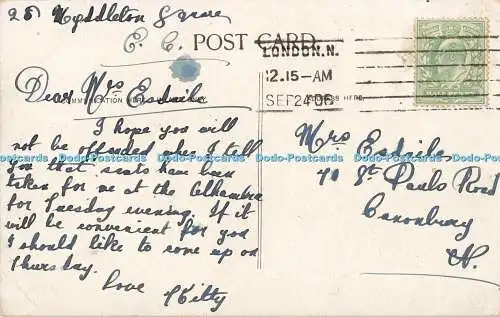 25 Myddleton Square
E. C.
POST CARD.
LONDON. N.
12.15-AM
SEP 24 06
Dear Mrs Esdaile
I hope you will
not be offended when I tell
you that seats have been
taken for me at the Alhambra
for Tuesday evening. If it
will be convenient for you
I should like to come up on
Thursday.
Love
Kitty
Mrs Esdaile
71 St Pauls Road
Canonbury
N.
Dodo-Postcards Dodo-Postcards Dodo-Postcards Dodo-Postcards Dodo-Postcards Dodo-Postcards